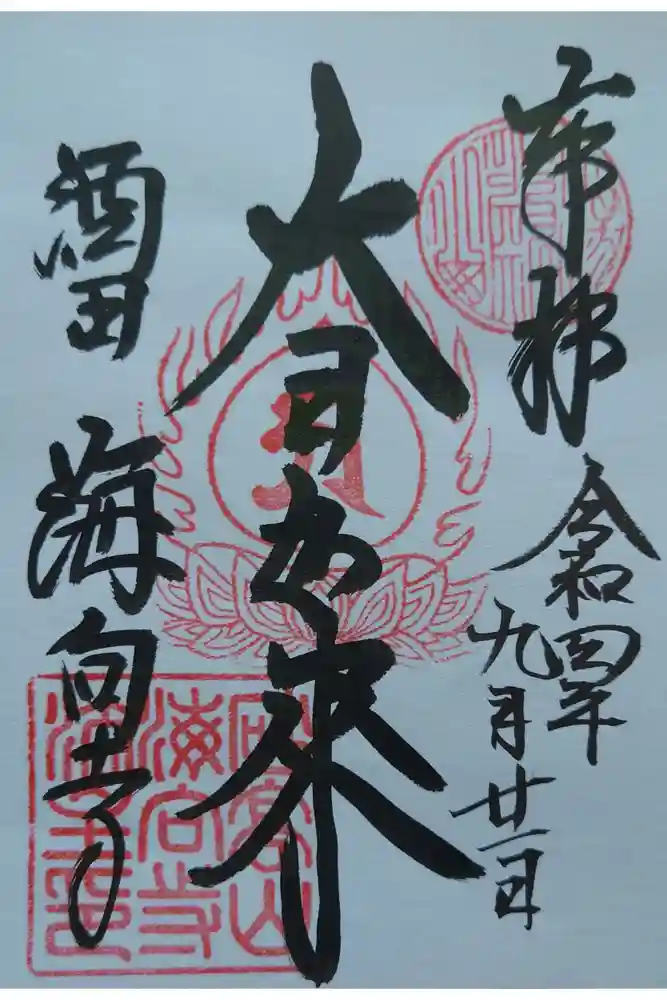 奉拝
令和四年
九月廿一日
大日如来
酒田
海向寺
海向寺